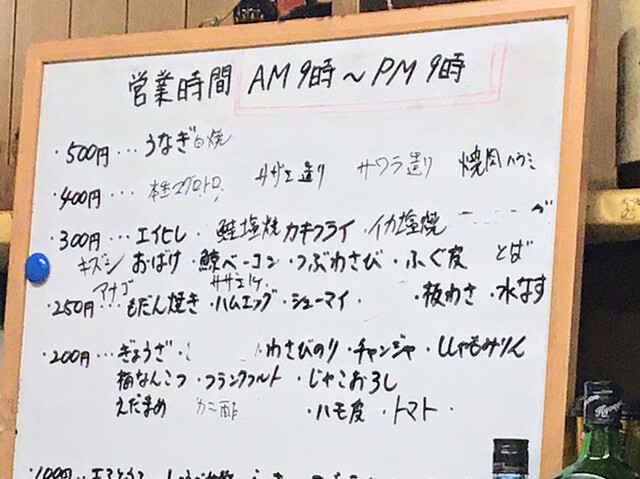 営業時間 AM9時～PM9時
・500円…うなぎ白焼
・400円… 本生マグロトロ、 サザエ造り サワラ造り 焼肉ハラミ
・300円…エイヒレ・ 鮭塩焼 カキフライ イカ塩焼
キズシ おばけ・鯨ベーコン・つぶわさび・ふぐ皮 とば
アナゴ
・250円…もだん焼き・ハムエッグ・シューマイ・ ・板わさ・水なす
・200円…ぎょうざ・ わさびのり・チャンジャ・ししゃもみりん
梅なんこつ・フランクフルト・じゃこおろし
えだまめ カニ酢 ・ハモ皮・トマト・
・100円…